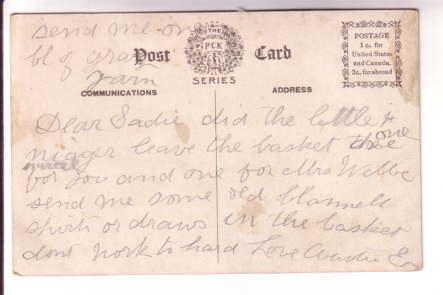 send me one
bl of gray
yarn
Post Card
THE
PCK
SERIES
POSTAGE
1 c. for
United States
and Canada.
2c. for abroad
COMMUNICATIONS
ADDRESS
Dear Sadie did the little
nigger leave the basket one
for you and one for Mrs Webbe
send me some old flannell
shirts or draws in the basket
dont work to hard Love